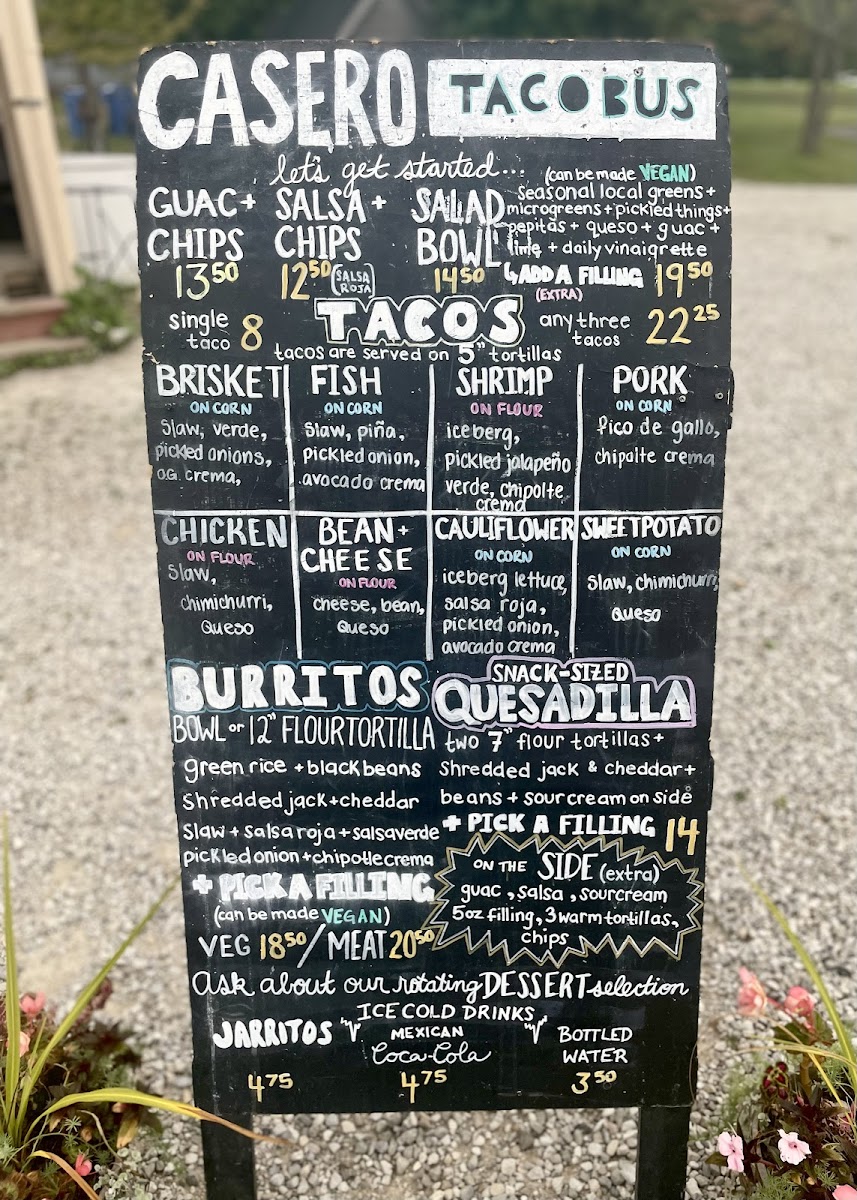 CASERO TACO BUS
let's get started...
(can be made VEGAN)
GUAC + CHIPS
13⁵⁰
SALSA + CHIPS
12⁵⁰ (SALSA ROJA)
SALAD BOWL
14⁵⁰
seasonal local greens +
microgreens + pickled things +
pepitas + queso + guac +
lime + daily vinaigrette
↳ ADD A FILLING 19⁵⁰
(EXTRA)
TACOS
single taco 8
any three tacos 22²⁵
tacos are served on 5" tortillas
BRISKET
ON CORN
slaw, verde,
pickled onions,
O.G. crema,
FISH
ON CORN
slaw, piña,
pickled onion,
avocado crema
SHRIMP
ON FLOUR
iceberg,
pickled jalapeño
verde, chipolte
crema
PORK
ON CORN
Pico de gallo,
chipolte crema
CHICKEN
ON FLOUR
Slaw,
chimichurri,
Queso
BEAN +
CHEESE
ON FLOUR
cheese, bean,
Queso
CAULIFLOWER
ON CORN
iceberg lettuce,
salsa roja,
pickled onion,
avocado crema
SWEETPOTATO
ON CORN
slaw, chimichurri,
queso
BURRITOS
BOWL or 12" FLOUR TORTILLA
green rice + black beans
shredded jack + cheddar
slaw + salsa roja + salsa verde
pickled onion + chipotle crema
+ PICK A FILLING
(can be made VEGAN)
VEG 18⁵⁰ / MEAT 20⁵⁰
SNACK-SIZED
QUESADILLA
two 7" flour tortillas +
Shredded jack & cheddar +
beans + sour cream on side
+ PICK A FILLING 14
ON THE SIDE (extra)
guac, salsa, sourcream
5oz filling, 3 warm tortillas,
chips
Ask about our rotating DESSERT selection
ICE COLD DRINKS
JARRITOS
4⁷⁵
MEXICAN
Coca-Cola
4⁷⁵
BOTTLED
WATER
3⁵⁰